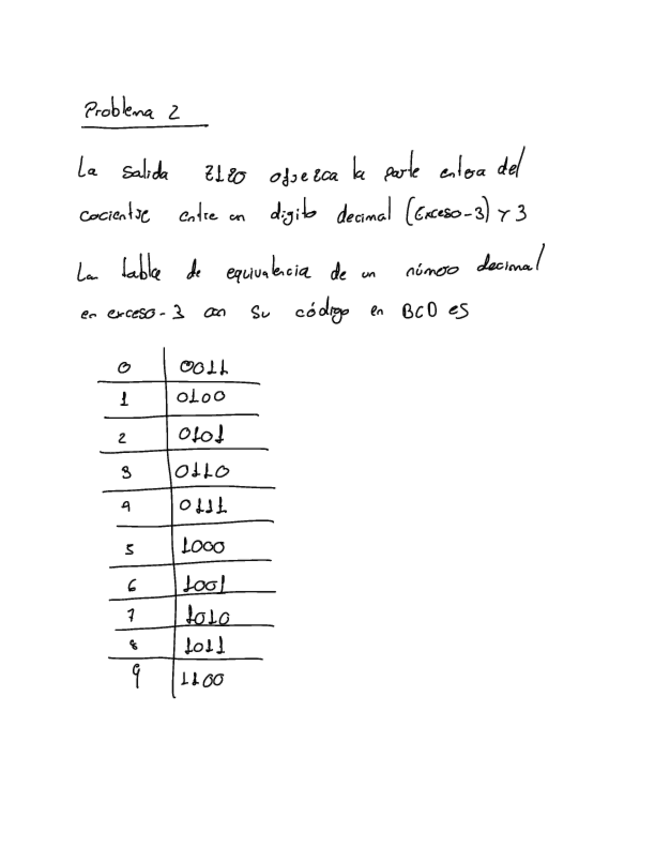 Problema 2
La salida Z1Z0 ofrezca la parte entera del
cociente entre un digito decimal (Exceso-3) y 3
La tabla de equivalencia de un número decimal
en exceso-3 con su código en BCD es
0 0011
1 0100
2 0101
3 0110
4 0111
5 1000
6 1001
7 1010
8 1011
9 1100